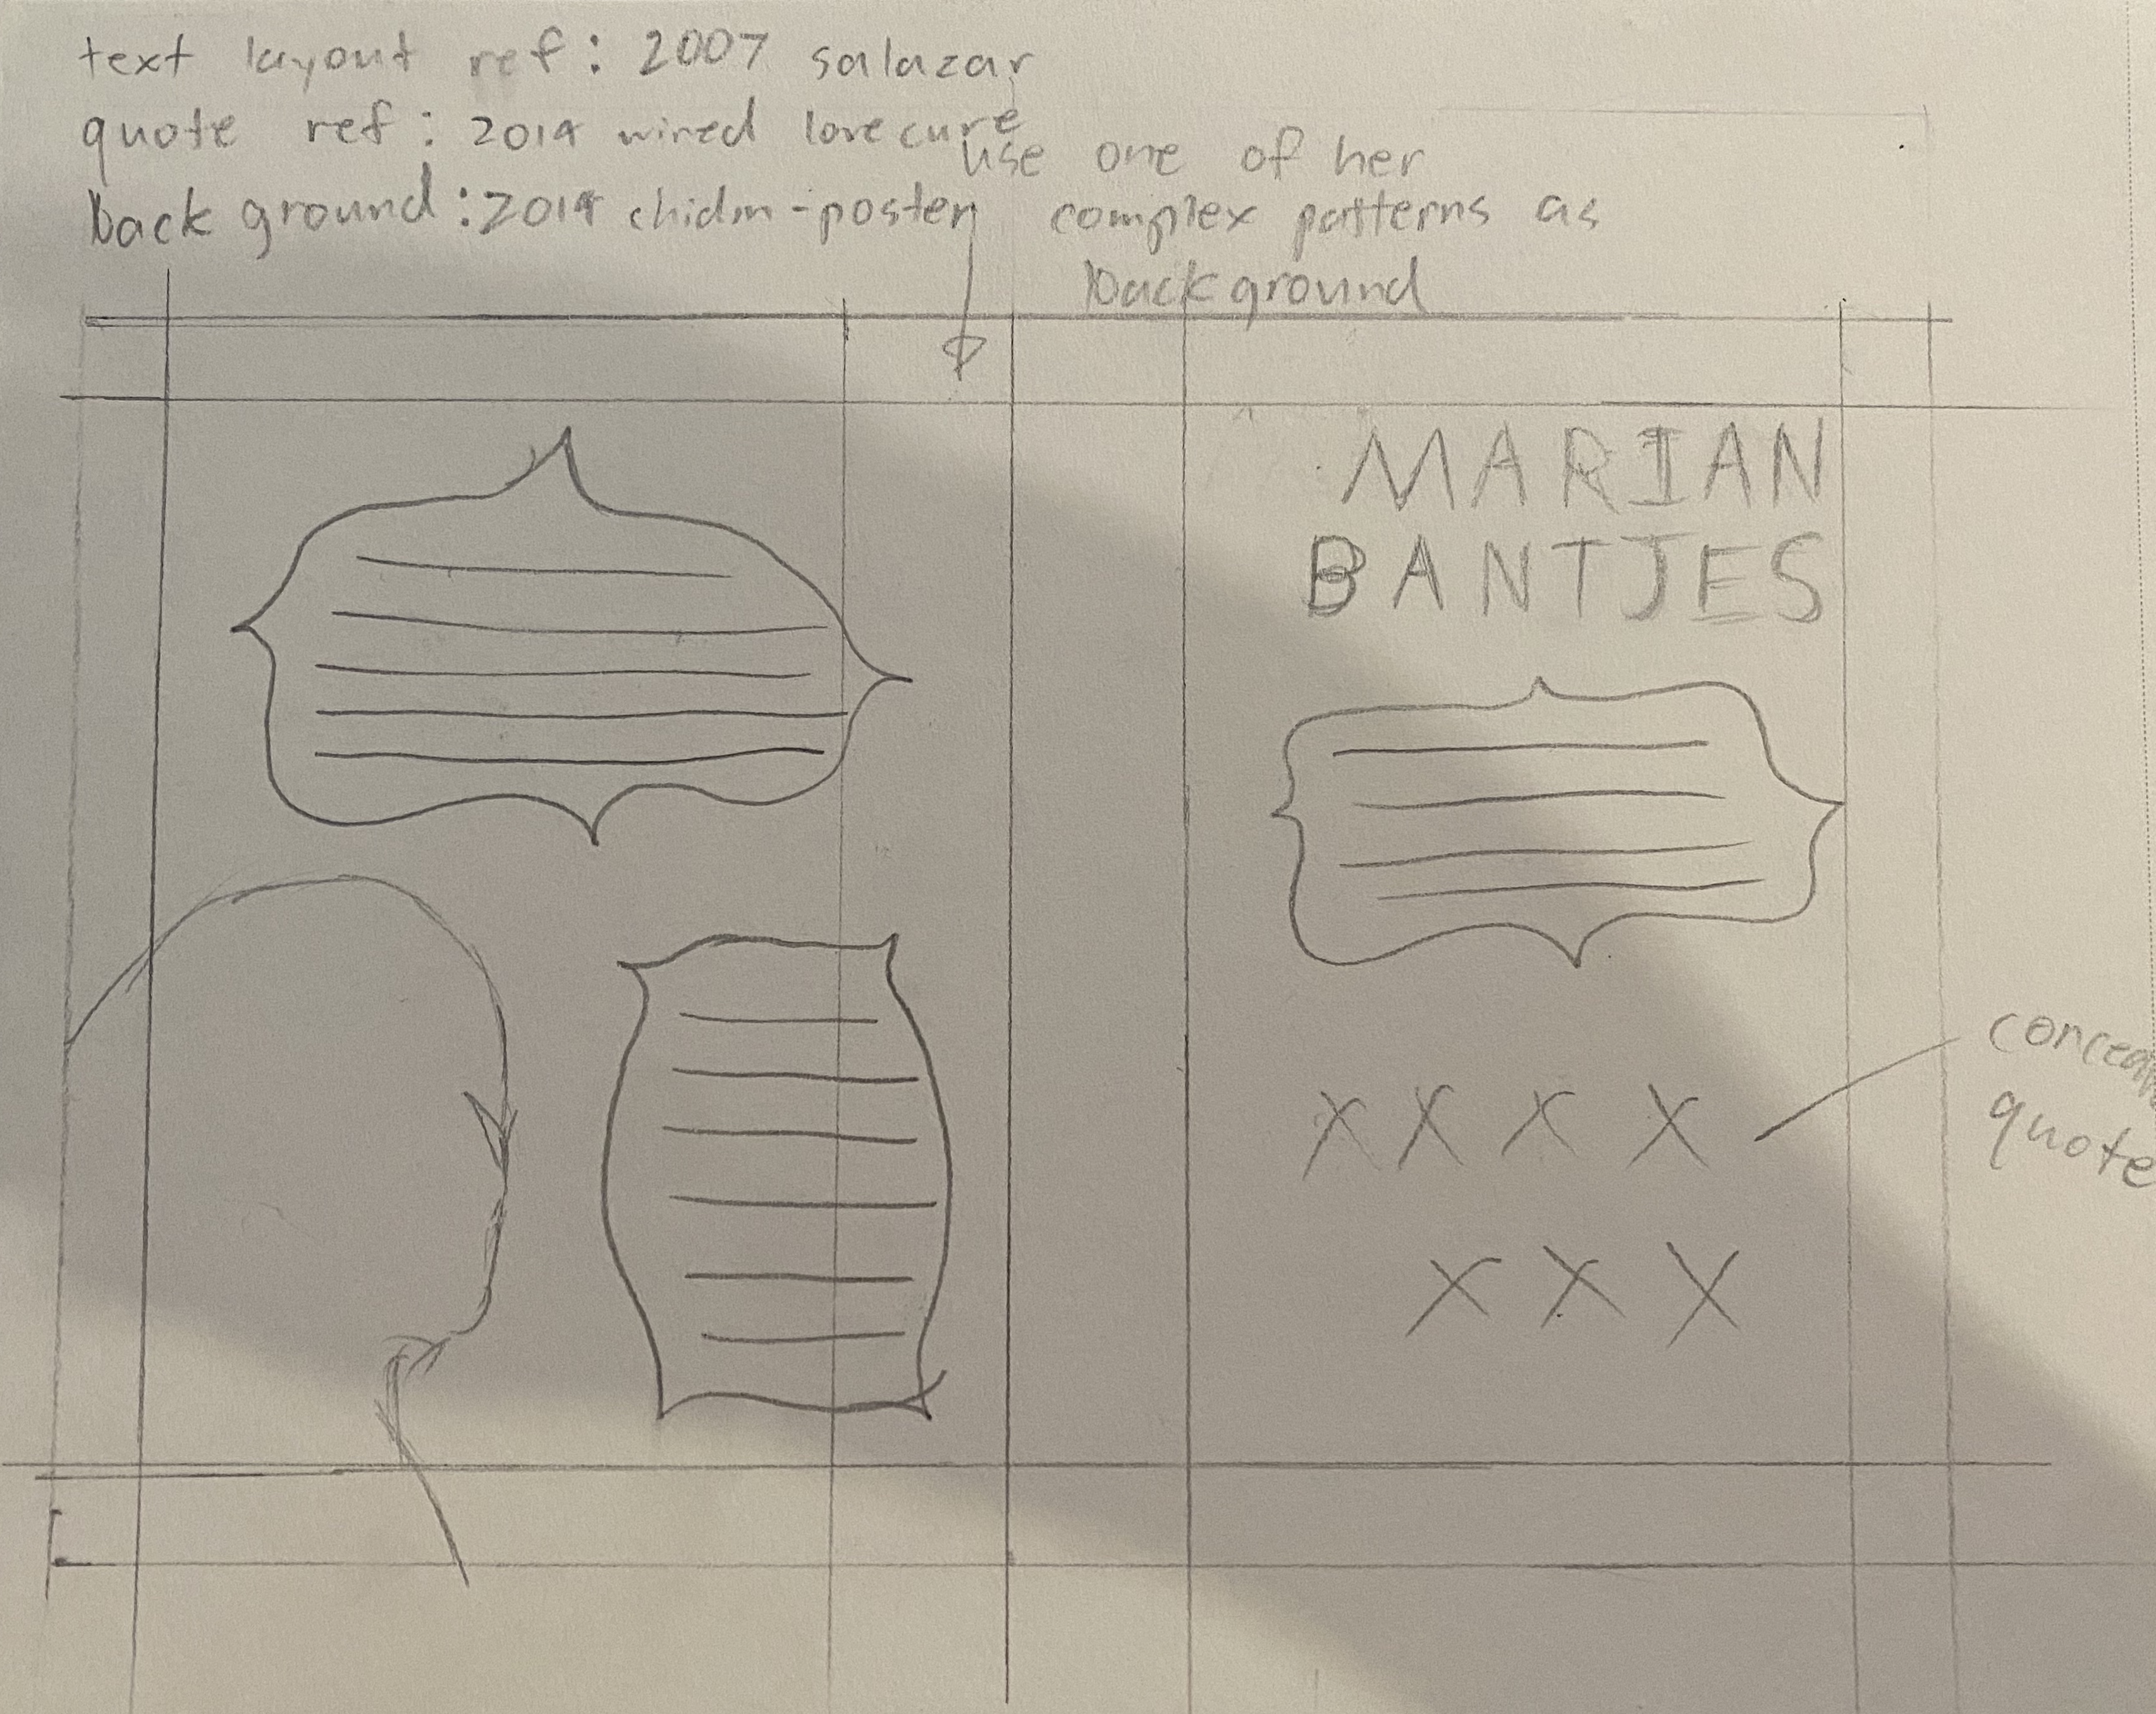 text layout ref: 2007 salazar
quote ref: 2014 wired lovecure
background: 2014 chidm-poster
use one of her
complex patterns as
background
MARIAN
BANTJES
X X X X
X X X
quote